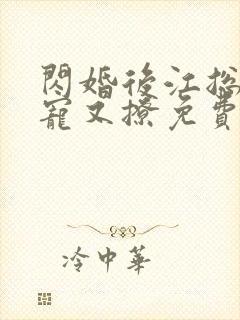 閃婚後江総
寵又撩免費
冷中華